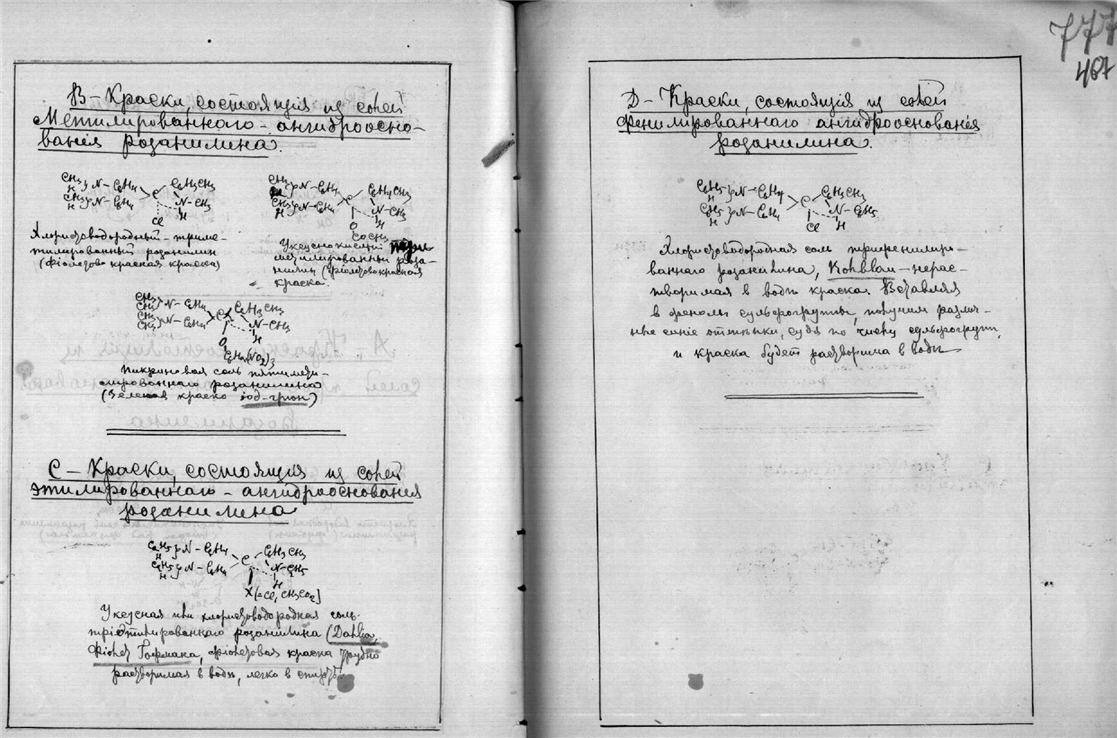 B – Краски, состоящія из солей
Метилированного – ангидроосно-
ванія розанилина.
CH₃ N – C₆H₄ C C₆H₃CH₃
H
CH₃ N – C₆H₄ N – CH₃
H Cl H
Хлористоводородный – триме-
тилированный розанилин
(фіолетово красная краска)
CH₃ N – C₆H₄ C C₆H₃CH₃
CH₃ N – C₆H₄ N – CH₃
H O H
COCH₃
Уксуснокислый три
метилированный роза-
нилин (фіолетовокрасная
краска.
CH₃ N – C₆H₄ C C₆H₃CH₃
CH₃
CH₃ N – C₆H₄ N – CH₃
CH₃ H
O
C₆H₂(NO₂)₃
Пикриновая соль пятимети-
лированнаго розанилина
(Зеленая краска іод-грюн)
C – Краски, состоящія из солей
этилированнаго – ангидрооснованія
розанилина
C₂H₅ N – C₆H₄ C C₆H₃CH₃
H
C₂H₅ N – C₆H₄ N – C₂H₅
H H
X [=Cl, CH₃CO₂]
Уксусная или хлористоводородная соль
тріэтилированнаго розанилина (Dahlia,
Фіолет Гофмана, фіолетовая краска трудно
растворимая в воде, легко в спирте
777
487
D – Краски, состоящія из солей
фенилированнаго ангидрооснованія
розанилина.
C₆H₅ N – C₆H₄ C C₆H₃CH₃
H
C₆H₅ N – C₆H₄ N – C₆H₅
H Cl H
Хлористоводородная соль трифенилиро-
ваннаго розанилина, – нерас-
творимая в воде краска. Вставляя
в фенолы сульфогруппы, получим различ-
ные синіе оттенки, судя по числу сульфогрупп,
и краска будет растворима в воде